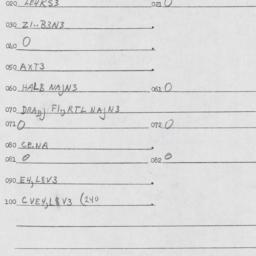 020 LE4KS3 021 0
030 Z1..B3N3
040 0
050 AXT3
060 HALB NAJN3 061 0
070 DRAJJ FIJRTL NAJN3
071 0 072 0
080 CB.NA
081 0 082 0
090 E4,L8V3
100 CVE4,L8V3 (240